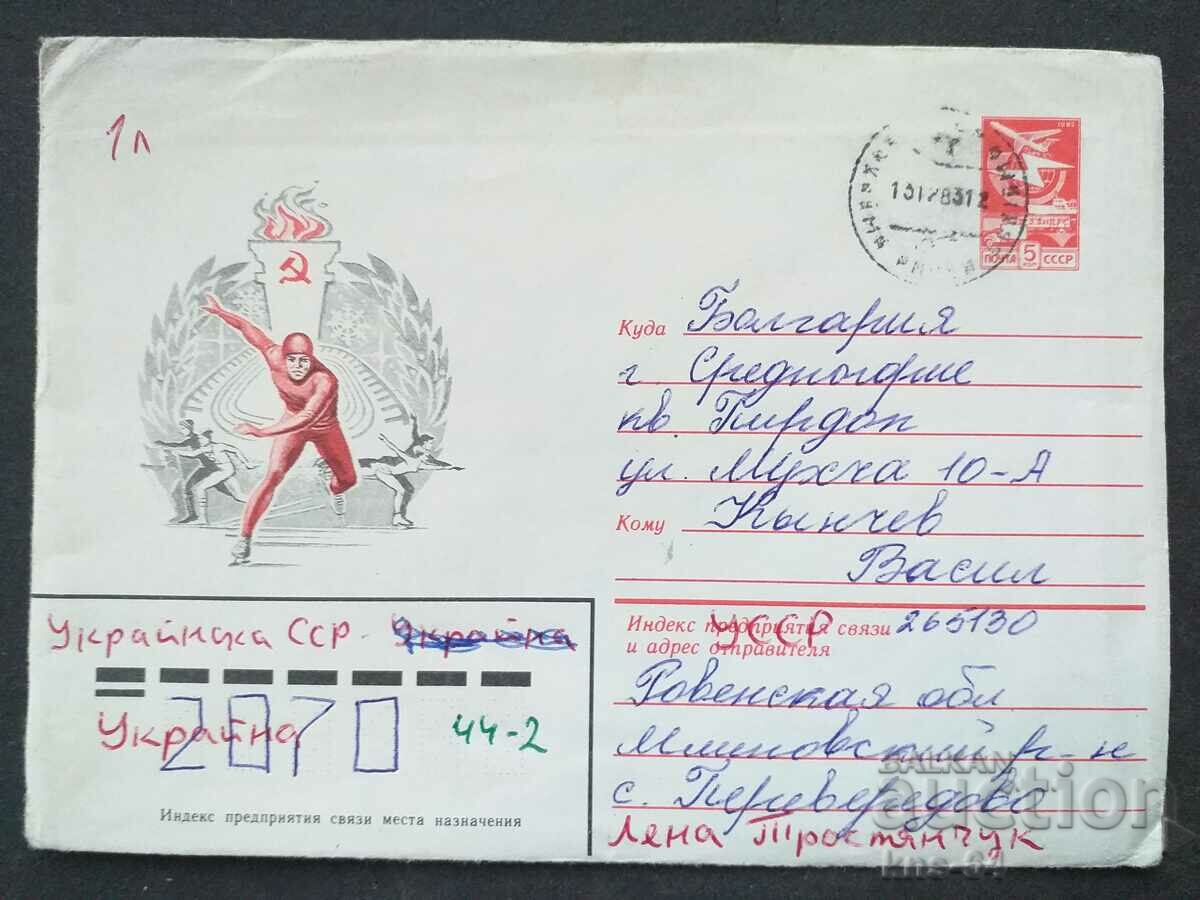 1л
1982
ПОЧТА 5 КОП СССР
Куда Болгария
г Средногорие
кв. Пирдоп
ул. Мухча 10-А
Кому Кынчев
Васил
Индекс предприятия связи 265130
и адрес отправителя
УССР
Ровенская обл
Млиновский р-н
с. Перевередово
Лена Тростянчук
Украйнска ССР - Украйна
2070
Украйна 44-2
Индекс предприятия связи места назначения
BALKAN
auction
kns-64